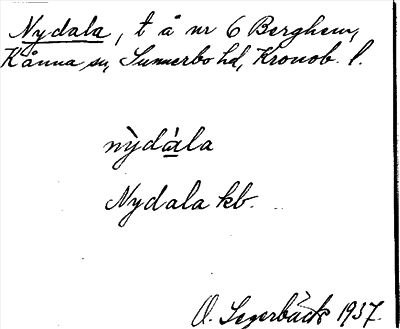 Nydala, t å nr 6 Berghem,
Kånna sn, Sunnerbo hd, Kronob. l.
nỳdála
Nydala kb.
O. Segerbäck 1937.